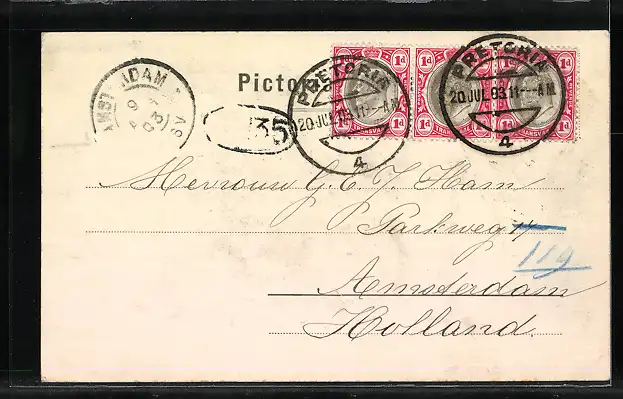 AMSTERDAM
Pictoria
35
PRETORIA
20 JUL 03 11--AM
4
PRETORIA
20 JUL 03 11--AM
4
1d 1d 1d
TRANSVAAL
Mevrouw G. E. J. Ham
Parkweg
119
Amsterdam
Holland.